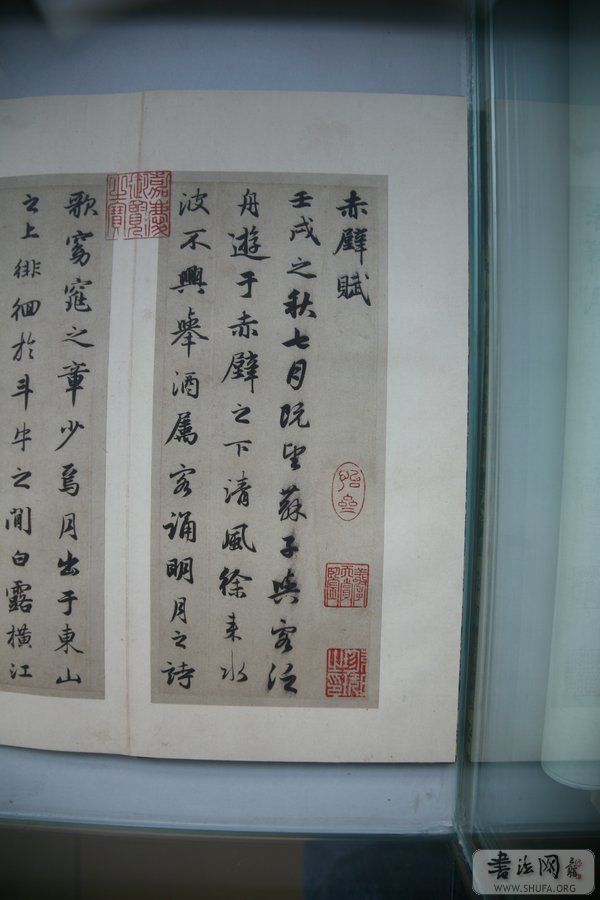 赤壁賦
壬戌之秋七月既望蘇子與客泛
舟遊于赤壁之下清風徐来水
波不興舉酒属客誦明月之詩
歌窈窕之章少焉月出于東山
之上徘徊於斗牛之間白露橫江
嘉慶御覽之寶
书法网
WWW.SHUFA.ORG